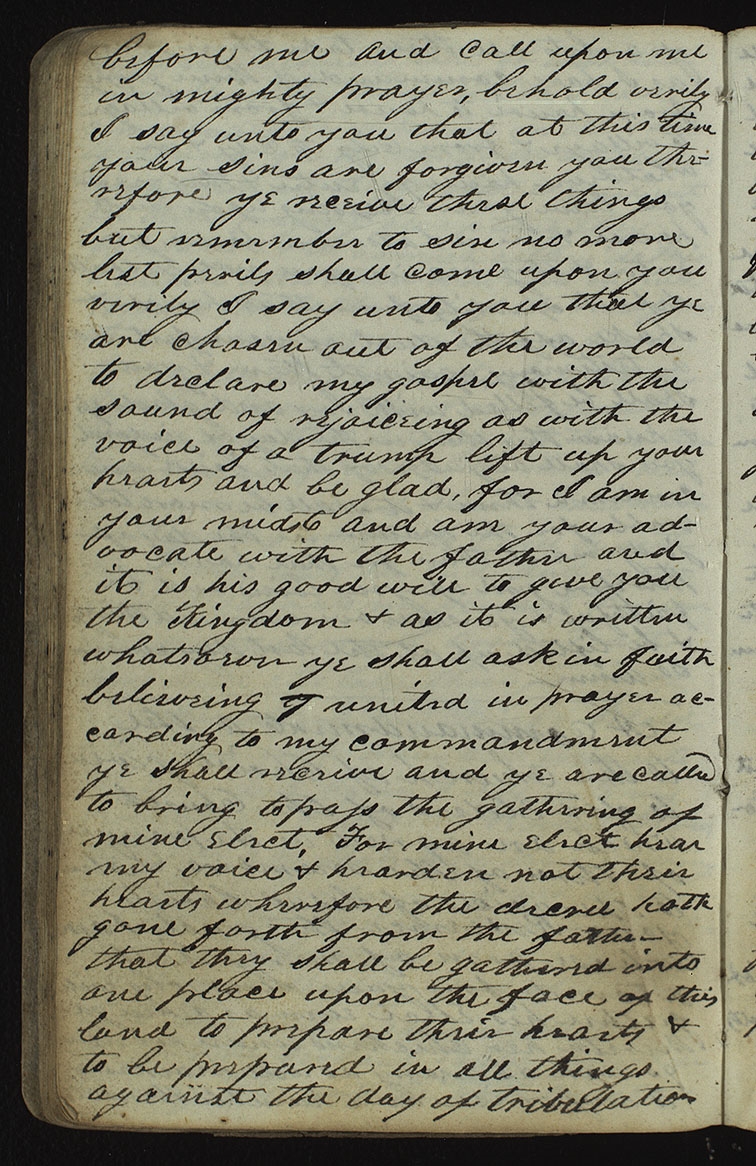 before me and call upon me
in mighty prayer, behold verily
I say unto you that at this time
your sins are forgiven you the=
refore ye receive these things
but remember to sin no more
lest perils shall come upon you
verily I say unto you that ye
are chosen out of the world
to declare my gospel with the
sound of rejoiceing as with the
voice of a trump lift up your
hearts and be glad, for I am in
your midst and am your ad-
vocate with the father and
it is his good will to give you
the Kingdom & as it is written
whatsoever ye shall ask in faith
believeing united in prayer ac-
cording to my commandment
ye shall receive and ye are called
to bring to pass the gathering of
mine Elect, For mine elect hear
my voice & hearden not their
hearts wherefore the decree hath
gone forth from the father
that they shall be gathered into
one place upon the face of this
land to prepare their hearts &
to be prepared in all things
against the day of tribulation